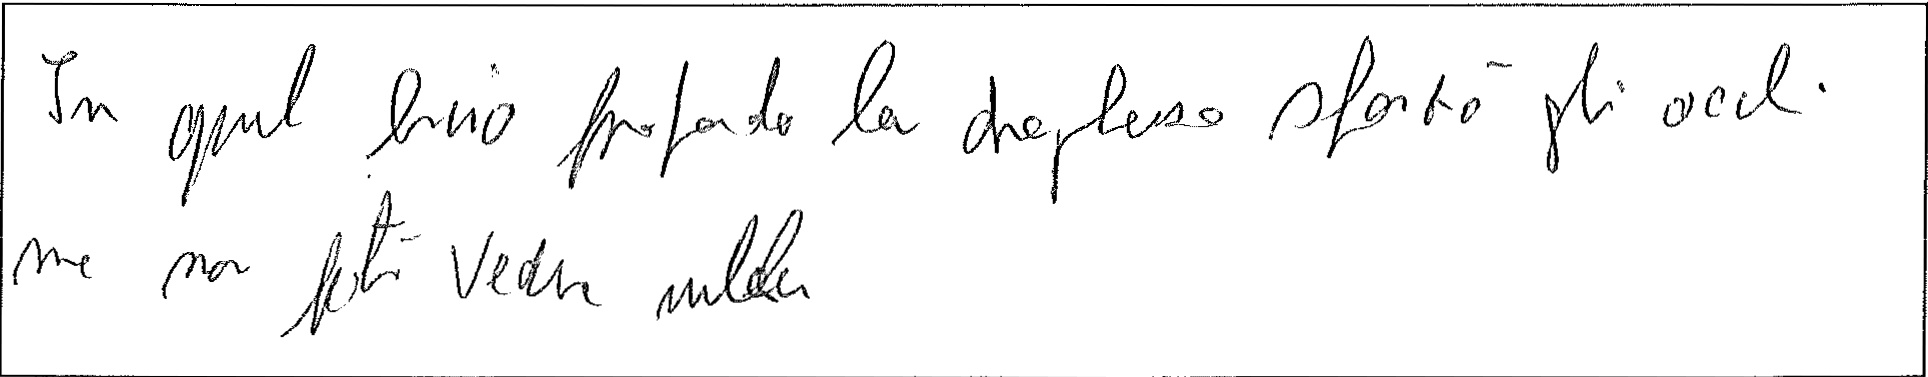 In quel buio profondo la dragessa sforzò gli occhi
ma non potè vedere nulla